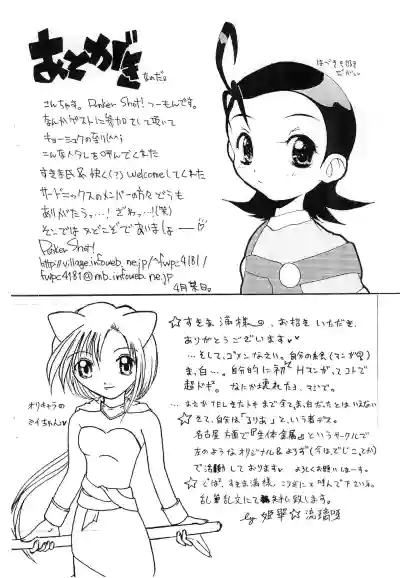 あとがき
なのだ。
はづきも好き
だがや。
こんちゃす。Ponker Shot! つーもんです。
なんかゲストに参加させて頂いて
キョーシュクの至り(^^;
こんなヘタレを呼んでくれた
すきま氏&快く(?)welcomeしてくれた
サードニックスのメンバーの方々どうも
ありがたうっ…! ざわっ…!(笑)
そこでは またどこぞであいましょーー
Ponker Shot!
http://village.infoweb.ne.jp/~fwpc4181/
fwpc4181@mb.infoweb.ne.jp
4月某日。
オリキャラの
ミイちゃん
☆すきま 満様、お招きいただき、
ありがとうございます
…そして、ゴメンなさい。自分の
ま、白…。自分的に初Hマンガってコトで
超ドキ。なにか壊れたヨ、マジで。
☆さて、自分は「るりあ」という者デス。
名古屋方面で『生体金属』というサークルで
左のようなオリジナル&よろず(今はでじこてか)
で活動しております よろしくお願いしまーす。
☆では、すきま満様、こりずにまた呼んで下さいネ。
乱筆乱文にて失礼致します。
by 姫翠☆流璃